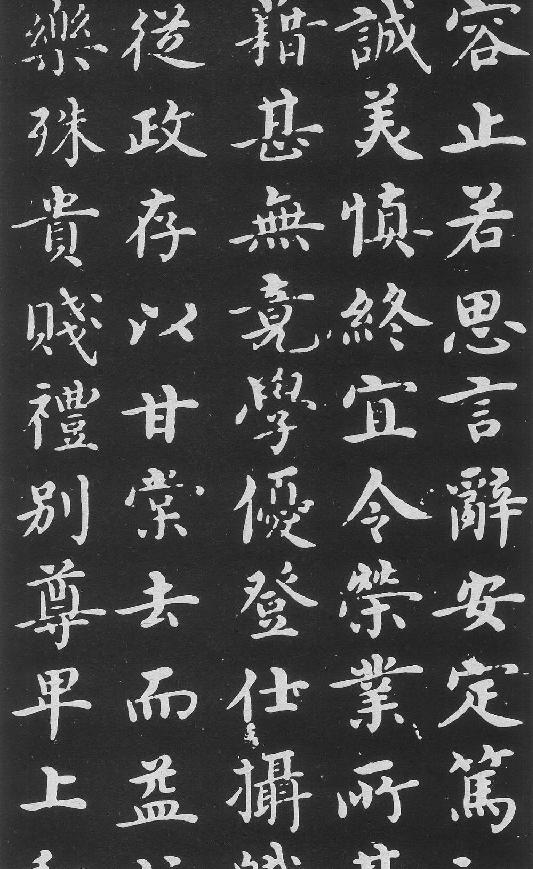 容止若思言辭安定篤
誠美慎終宜令榮業所
藉甚無竟學優登仕攝
從政存以甘棠去而益
樂殊貴賤禮別尊卑上